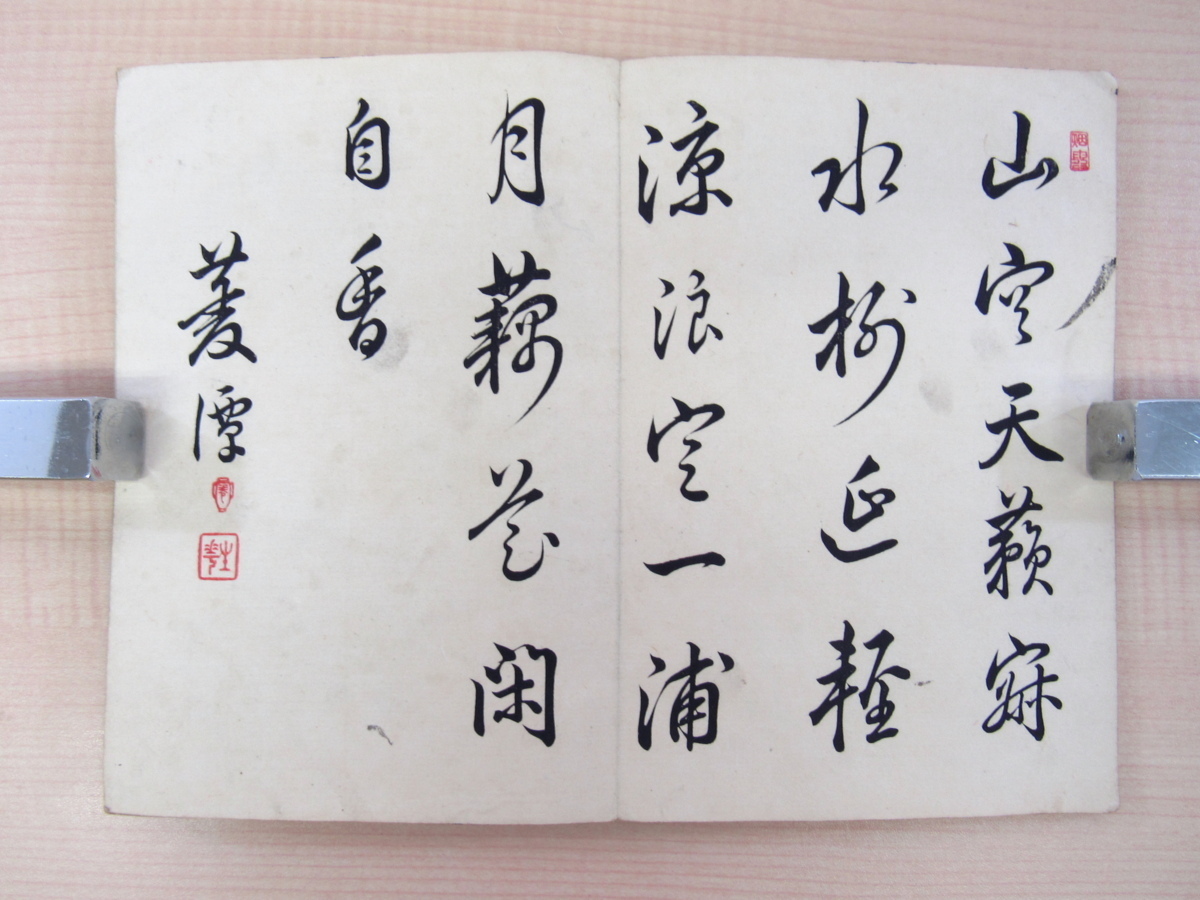 山空天籟寂
水榭延輕
涼浪定一浦
月藕花閑
自香
菱潭